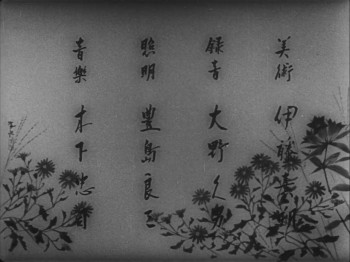 美術 伊藤憙朔
録音 大野久男
照明 豊島良三
音樂 木下忠司